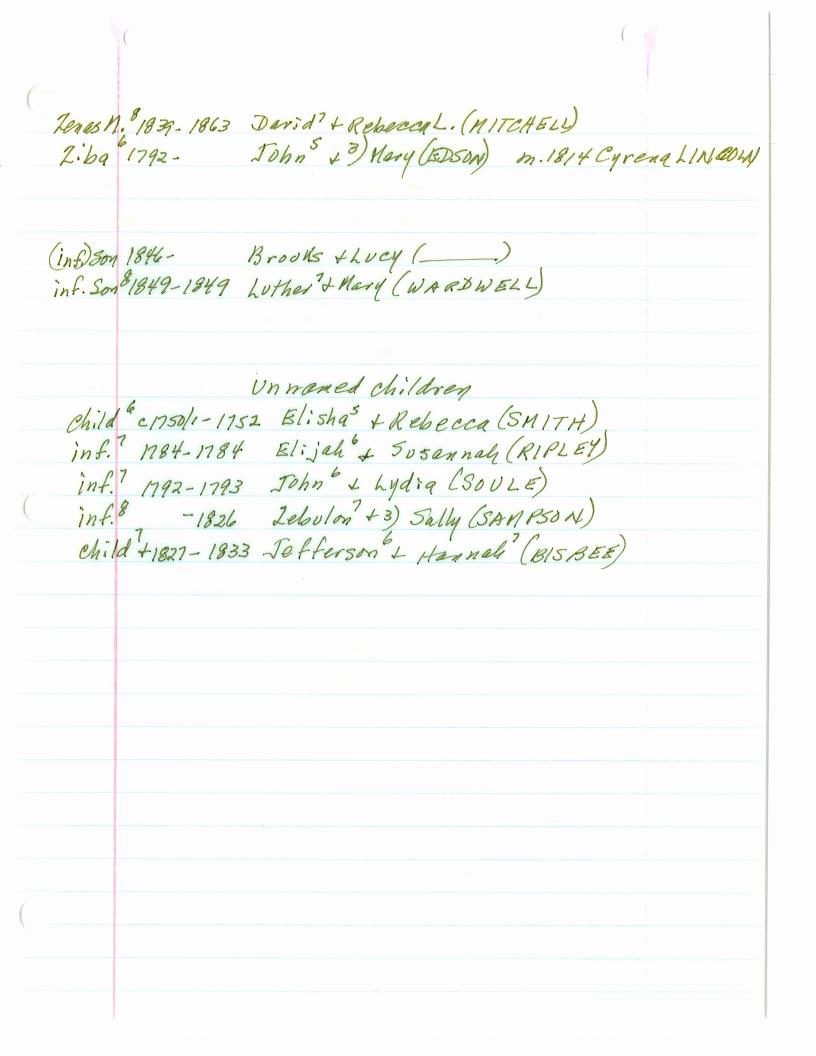 Zenas M.⁸ 1839-1863 David⁷ + Rebecca L. (MITCHELL)
Ziba⁶ 1792- John⁵ + 3) Mary (EDSON) m. 1814 Cyrena LINCOLN
(inf.) Son 1846- Brooks + Lucy (______)
inf. Son⁸ 1849-1849 Luther⁷ + Mary (WARDWELL)
Unnamed children
child⁶ c1750/1-1752 Elisha⁵ + Rebecca (SMITH)
inf.⁷ 1784-1784 Elijah⁶ + Susannah (RIPLEY)
inf.⁷ 1792-1793 John⁶ + Lydia (SOULE)
inf.⁸ -1826 Zebulon⁷ + 3) Sally (SAMPSON)
child⁷ +1827-1833 Jefferson⁶ + Hannah⁷ (BISBEE)